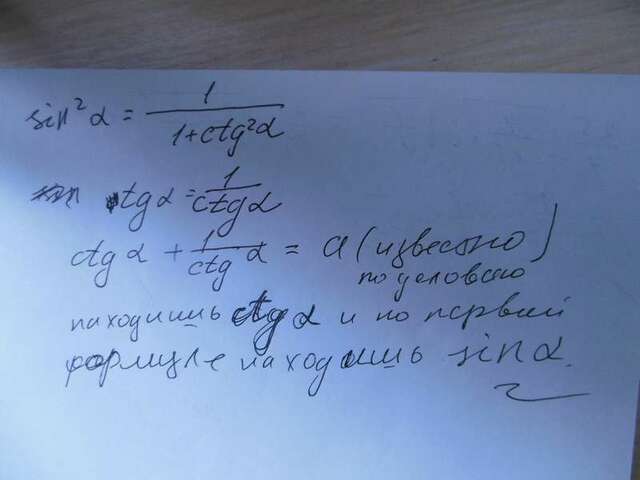 sin²α = 1/(1+ctg²α)
tgα = 1/ctgα
ctgα + 1/ctgα = a (известно
по условию)
находишь ctgα и по первой
формуле находишь sinα.